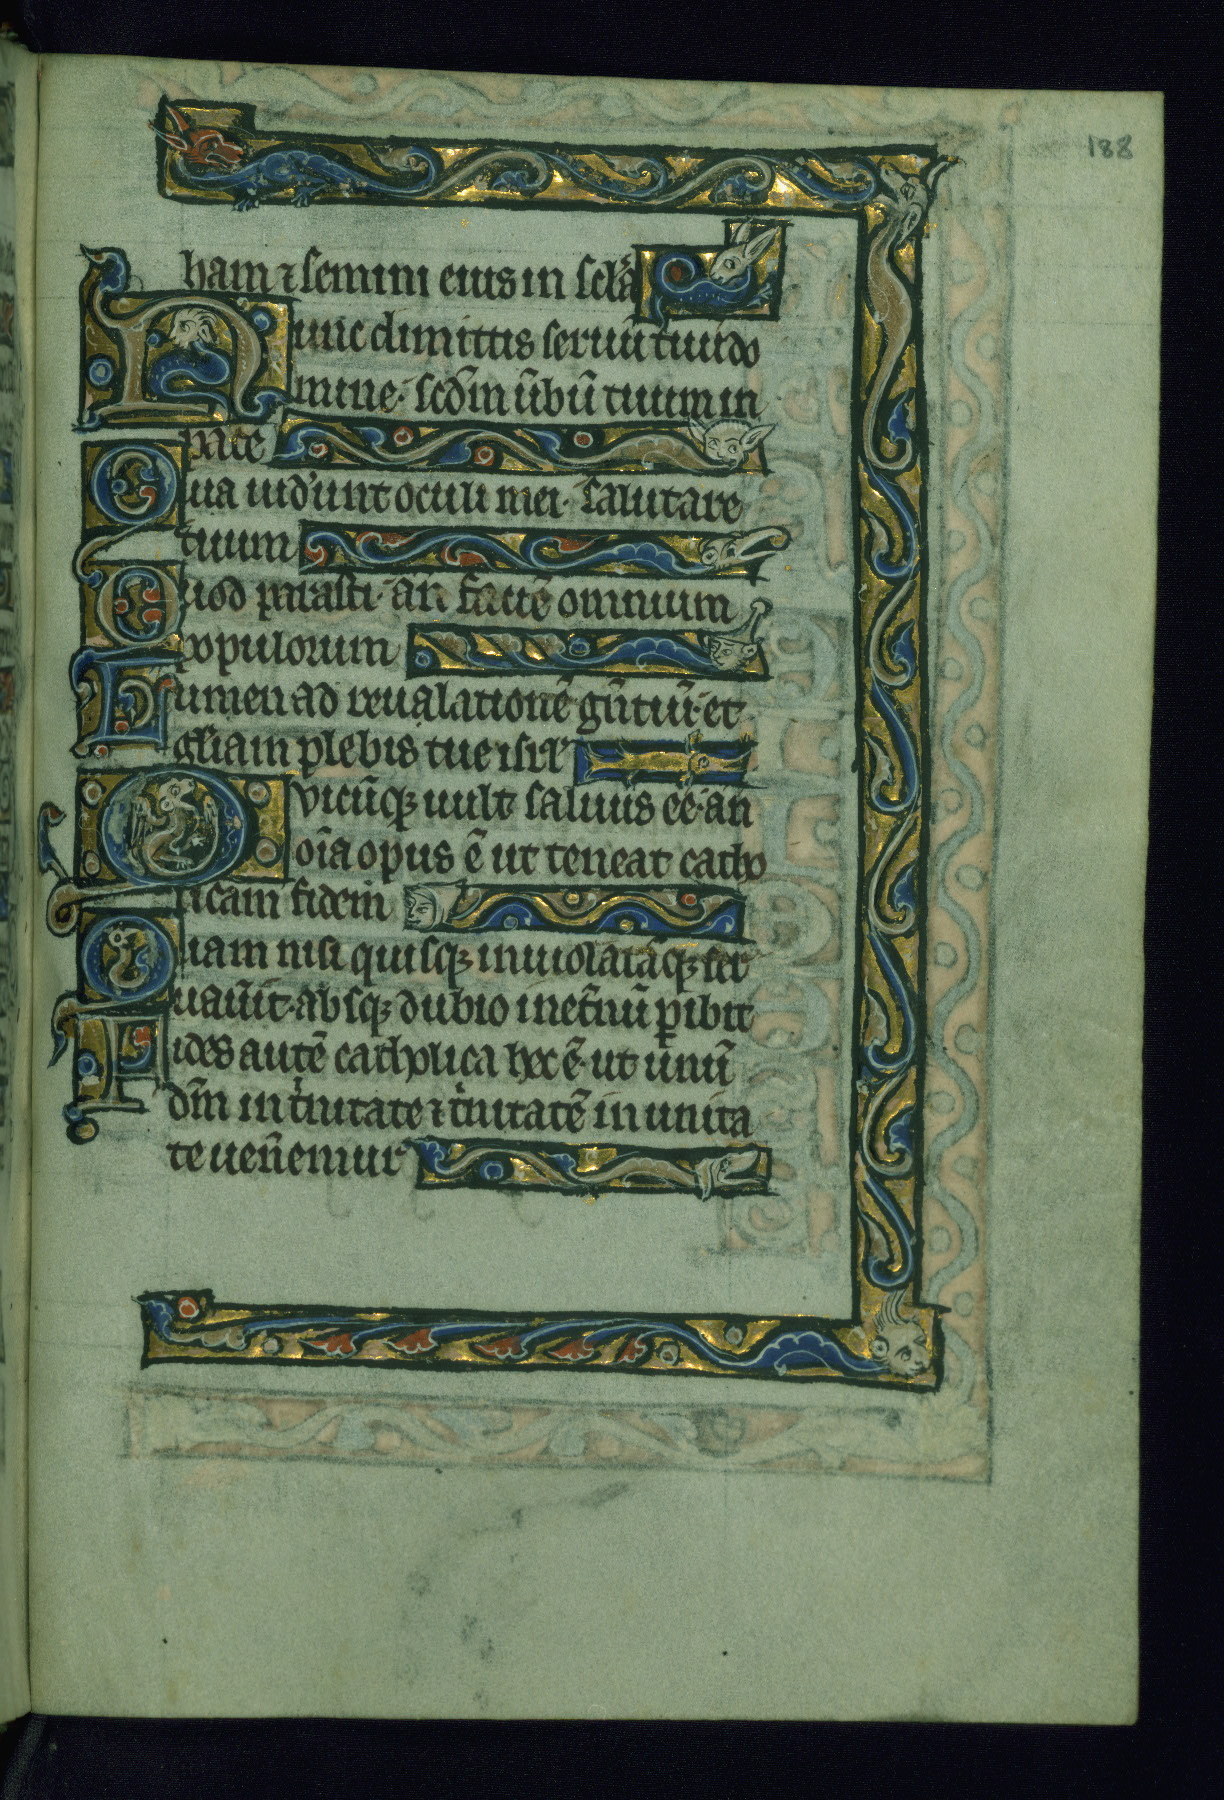 188
ham ⁊ semini eius in sc̄la
Nunc dimittis seruū tuū do
mine· scd̄m ūbū tuum in
pace
Quia uid'unt oculi mei· salutare
tuum
Quod parasti· an̄ faciē omnium
populorum
Lumen ad reualationē gn̄tiū· et
gl̄iam plebis tue isrl'
Quicūq; uult saluus eē· an̄
oīa opus ē ut teneat catho
licam fidem
Quam nisi quisq; inuiolatāq; ser
uau̅it· absq; dubio inet̄nū ꝑibit
Fides autē catholica hec ē· ut unū
dm̄ in t̄nitate ⁊ t̄nitatē in unita
te uen̄emur